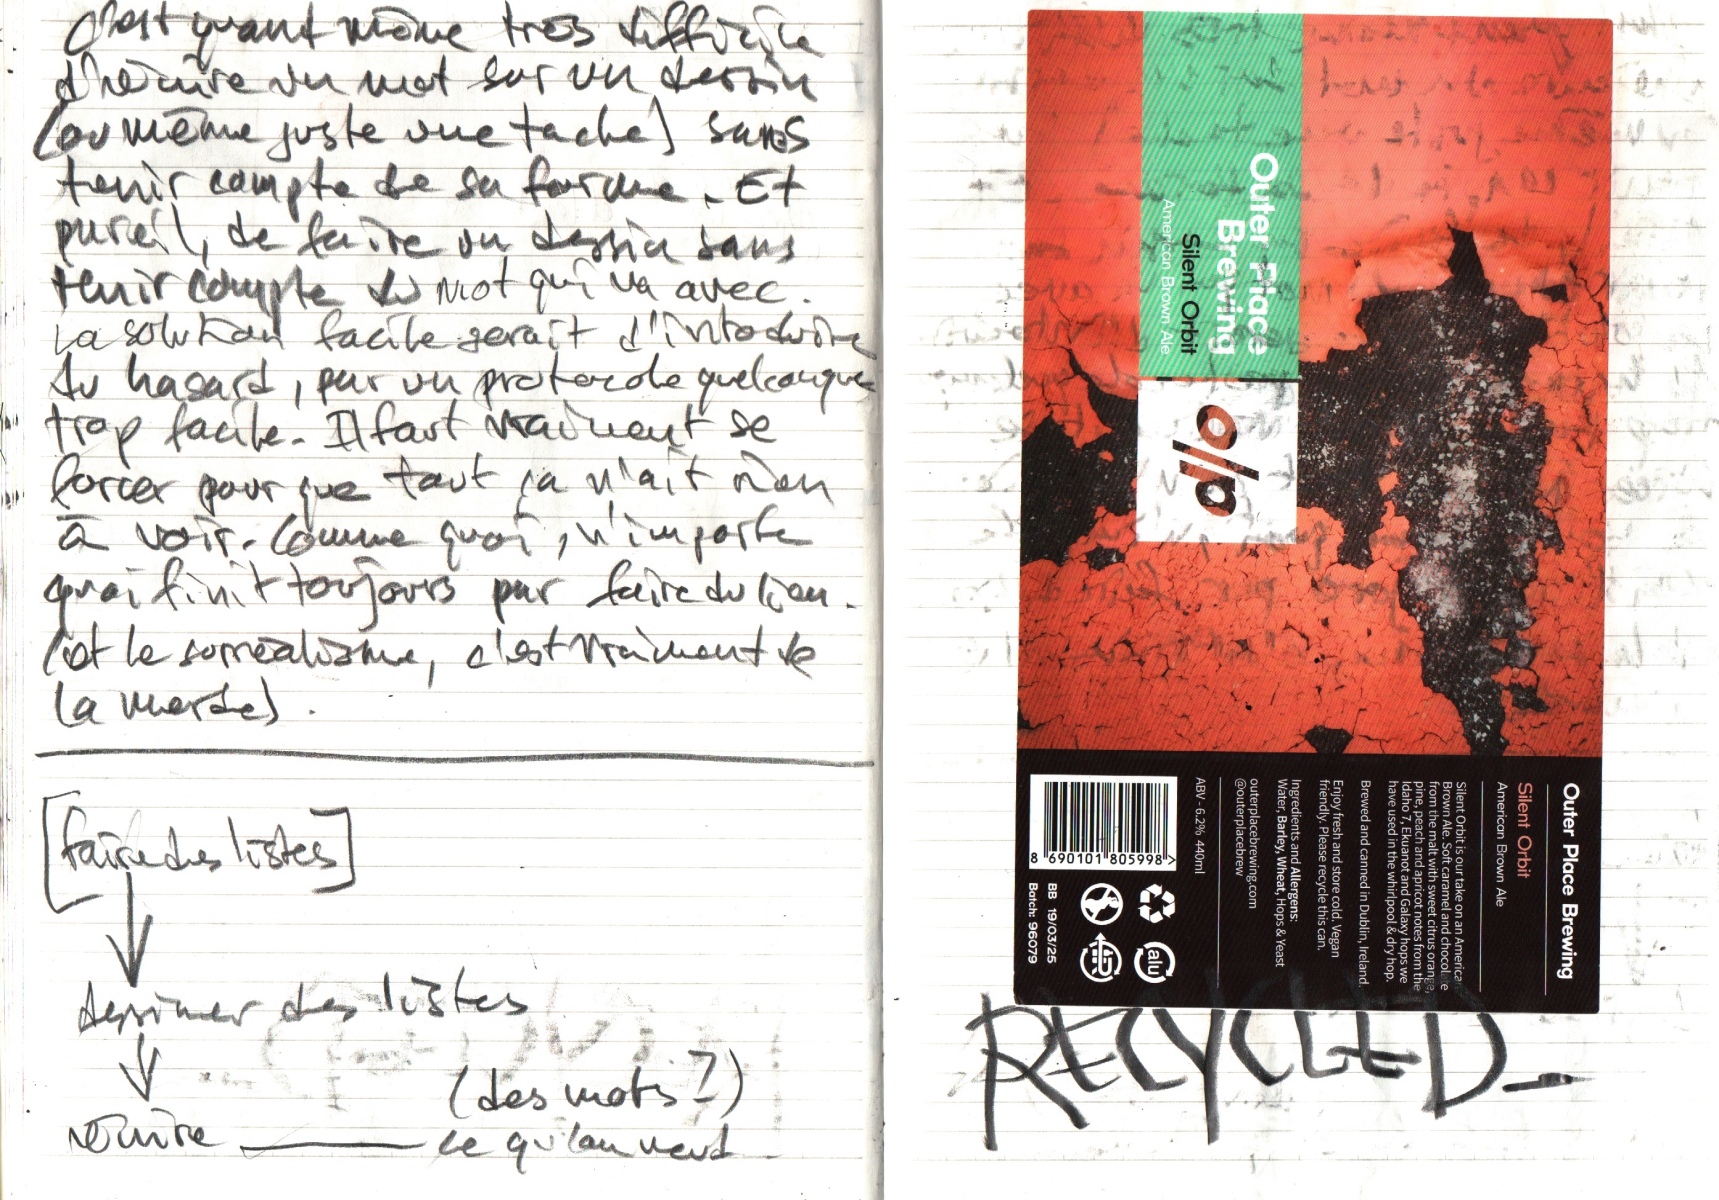 C'est quant même très difficile
d'écrire un mot sur un dessin
(ou même juste une tache) sans
tenir compte de sa forme. Et
pareil, de faire un dessin sans
tenir compte du mot qui va avec.
La solution facile serait d'introduire
du hasard, par un protocole quelconque
trop facile. Il faut vraiment se
forcer pour que tout ça n'ait rien
à voir. Comme quoi, n'importe
quoi finit toujours par faire du lien.
(et le surréalisme, c'est vraiment de
la merde).
[faire des listes]
dessiner des listes
(des mots ?)
réécrire ce qu'on veut.
Outer Place
Brewing
Silent Orbit
American Brown Ale
o/p
Outer Place Brewing
Silent Orbit
American Brown Ale
Silent Orbit is our take on an American
Brown Ale. Soft caramel and chocolate
from the malt with sweet citrus orange,
pine, peach and apricot notes from the
Idaho 7, Ekuanot and Galaxy hops we
have used in the whirlpool & dry hop.
Brewed and canned in Dublin, Ireland.
Enjoy fresh and store cold. Vegan
friendly. Please recycle this can.
Ingredients and Allergens:
Water, Barley, Wheat, Hops & Yeast
outerplacebrewing.com
@outerplacebrew
ABV - 6.2% 440ml
8 690101 805998 >
alu
BB 19/03/25
Batch: 96079
RECYCLED_